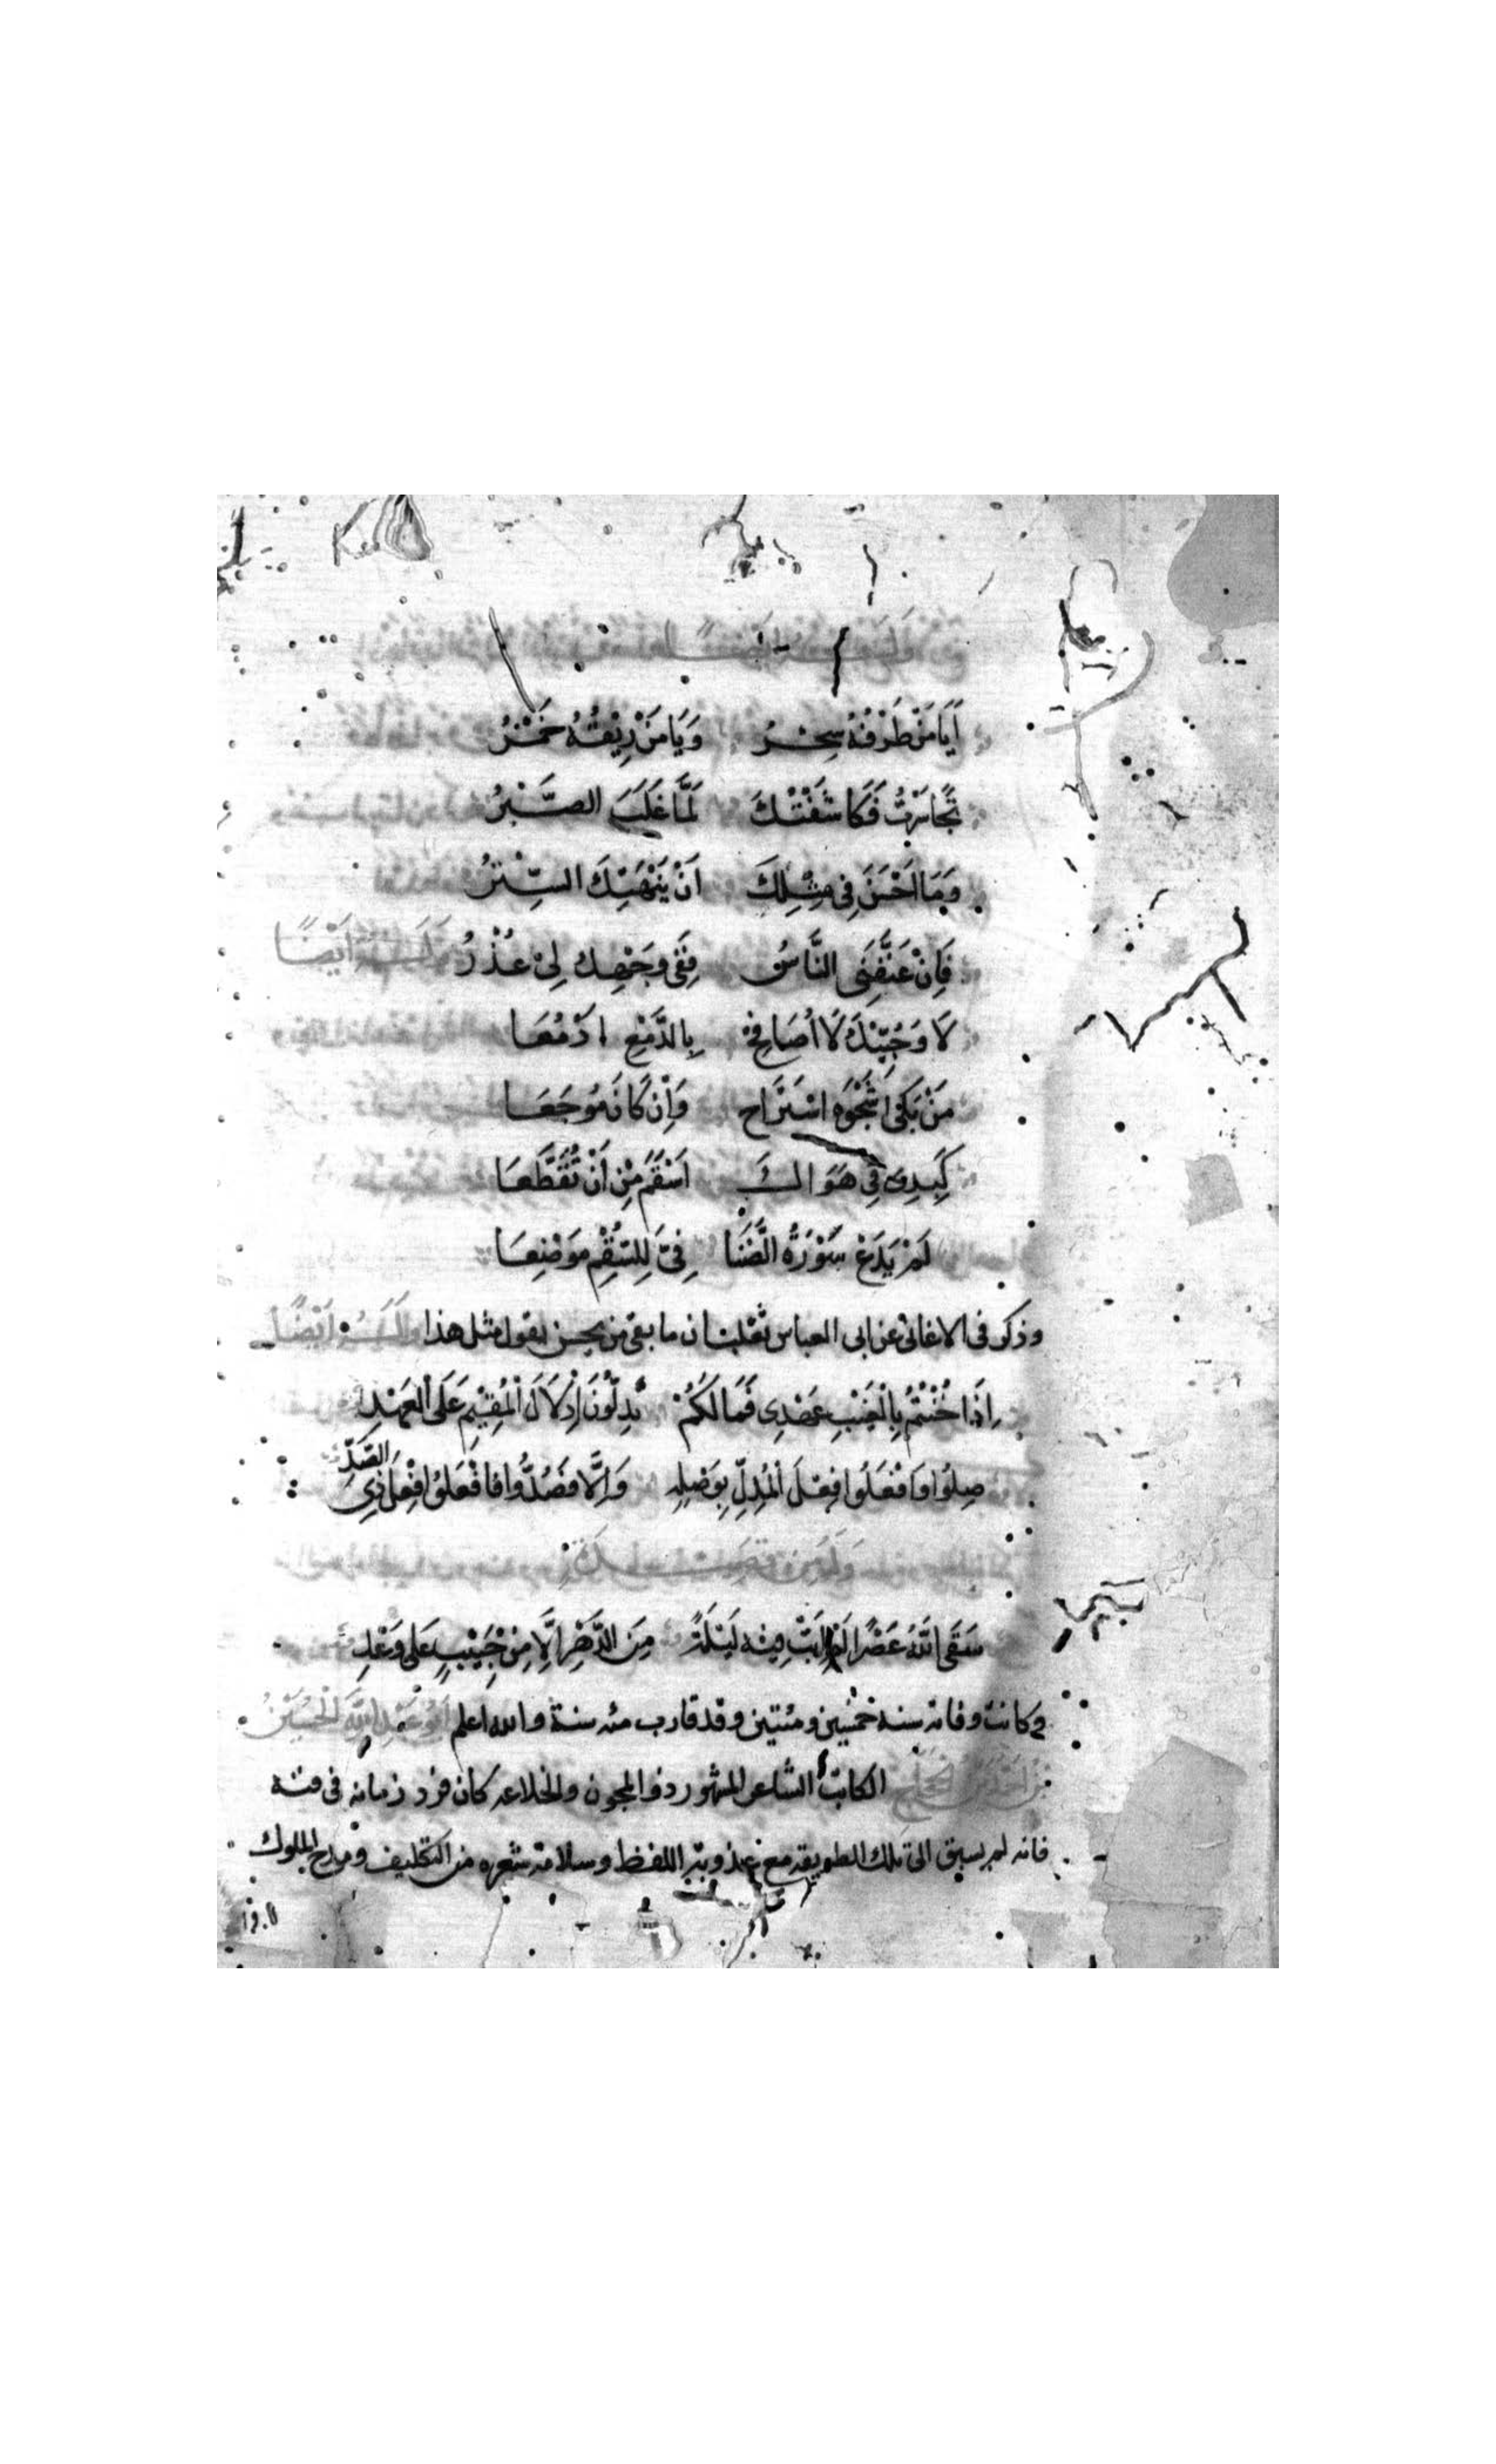 أَيَا مَنْ طَرْفُهُ سِحْرُ وَيَا مَنْ رِيْقُهُ خَمْرُ
تَجَاسَرْتُ فَكَاشَفْتُكَ لَمَّا غَلَبَ الصَّبْرُ
وَمَا اَحْسَنَ فِى مِثْلِكَ اَنْ يَنْهَتِكَ السِّتْرُ
فَاِنْ عَنَّفَنِى النَّاسُ فَفِى وَجْهِك لِىْ عُذْرُ وَلَــهُ اَيْضًا
لَا وَحُبِّيْكَ لَا اُصَافِحُ بِالدَّمْعِ ادْمُعَا
مَنْ بَكَى شَجْوَه اسْتَرَاح وَاِنْ كَانَ مُوْجَعَا
كَبِدِى فِى هَوَاكَ اَسْقَمُ مِنْ اَنْ تُقَطَّعَا
لَمْ يَدَعْ سَوْرَةُ الضَّنَا فِىَّ لِلسُّقْمِ مَوْضِعَا
وذكر فى الاغانى عن ابى العباس ثعلب ان ما بقى من يحسن يقول مثل هذا وَلَــهُ اَيْضًا
اِذَا خُنْتُمُ بِالْغَيْبِ عَهْدِى فَمَا لَكُمْ تُدِلُّوْنَ اِدْلَالَ الْمُقِيْمِ عَلَى الْعَهْدِ
صِلُوْا وَافْعَلُوا فِعْلَ الْمُدِلِّ بِوَصْلِهِ وَاِلَّا فَصُدُّوا فافْعَلُوْا فِعْلَ ذِى الصَّدِّ
وَلَهُ مِنْ قَصِيْــدَة
سَقَى اللّٰهُ عَصْرًا لَمْ اَبَتْ فِيْهِ لَيْلَةً مِنَ الدَّهْرِ اِلَّا مِنْ حَبِيْبٍ عَلى وَعْدِ
وكانت وفاته سنة خمسين ومئتين وقد قارب مئه سنة والله اعلم اَبُوْ عَبْدِ اللّٰهِ الْحُسَيْنُ
بْنُ اَحْمَدَ بْنِ الْحَجَّاجِ الكاتب الشاعر المشهور ذو المجون والخلاعه كان فرد زمانه فى فنه
فانه لم يسبق الى تلك الطريقه مع عذوبة اللفظ وسلامة شعره من التكليف ومدح الملوك